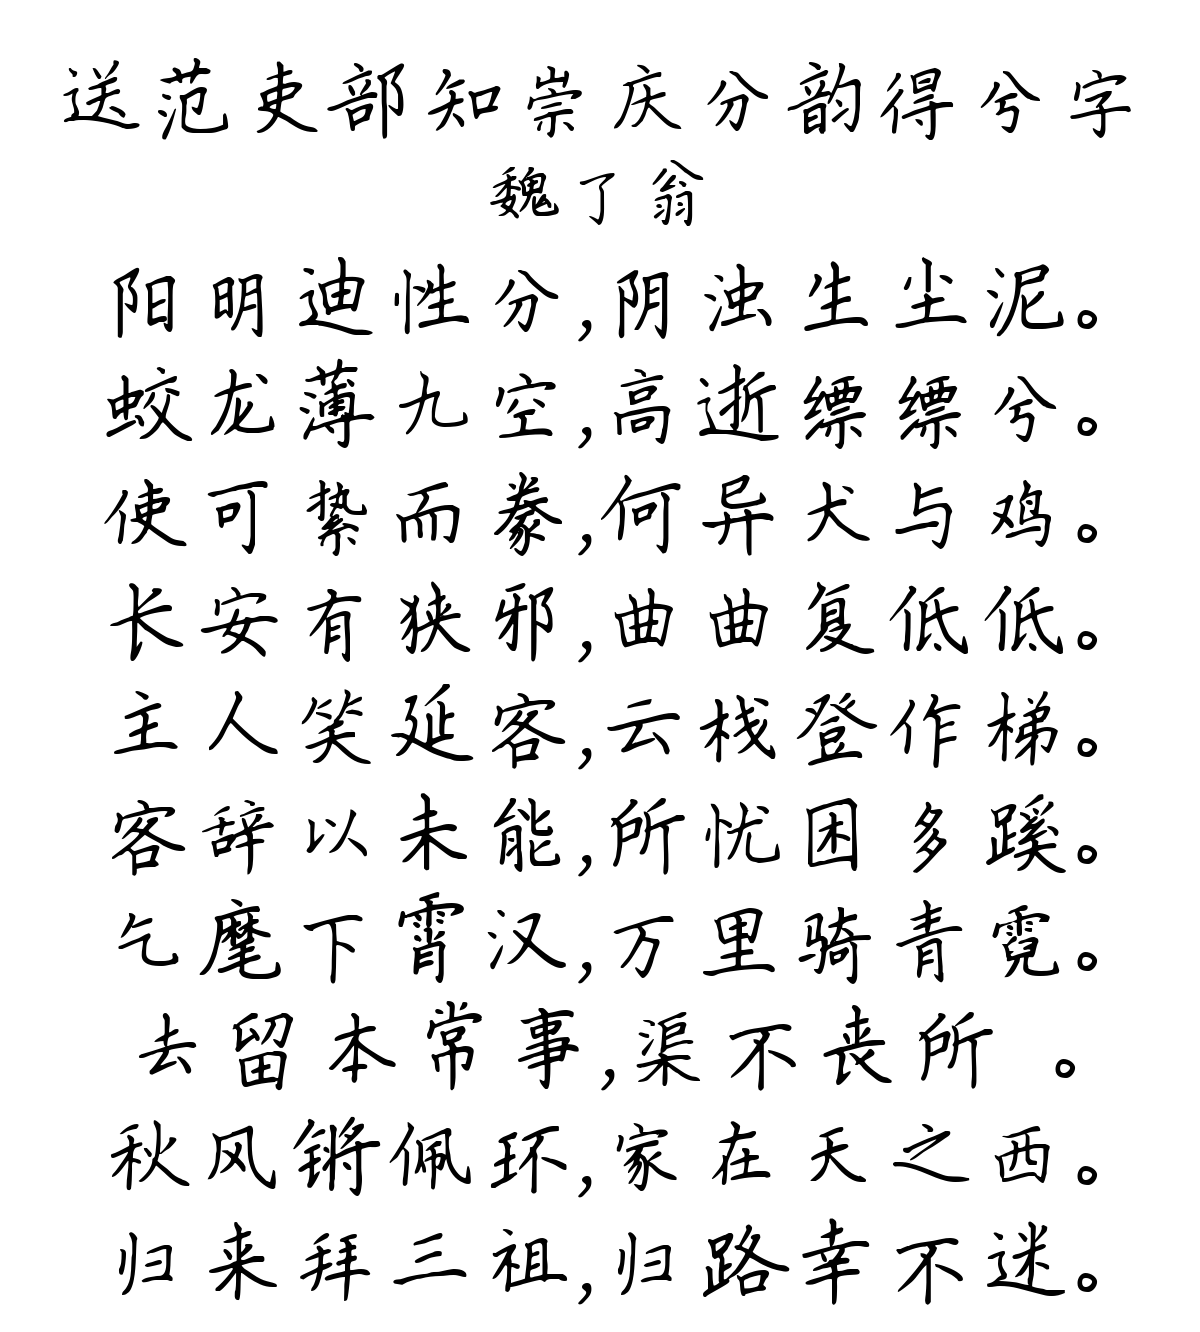 送范吏部知崇庆分韵得兮字
魏了翁
阳明迪性分,阴浊生尘泥。
蛟龙薄九空,高逝缥缥兮。
使可絷而豢,何异犬与鸡。
长安有狭邪,曲曲复低低。
主人笑延客,云栈登作梯。
客辞以未能,所忧困多蹊。
乞麾下霄汉,万里骑青霓。
去留本常事,渠不丧所 。
秋风锵佩环,家在天之西。
归来拜三祖,归路幸不迷。